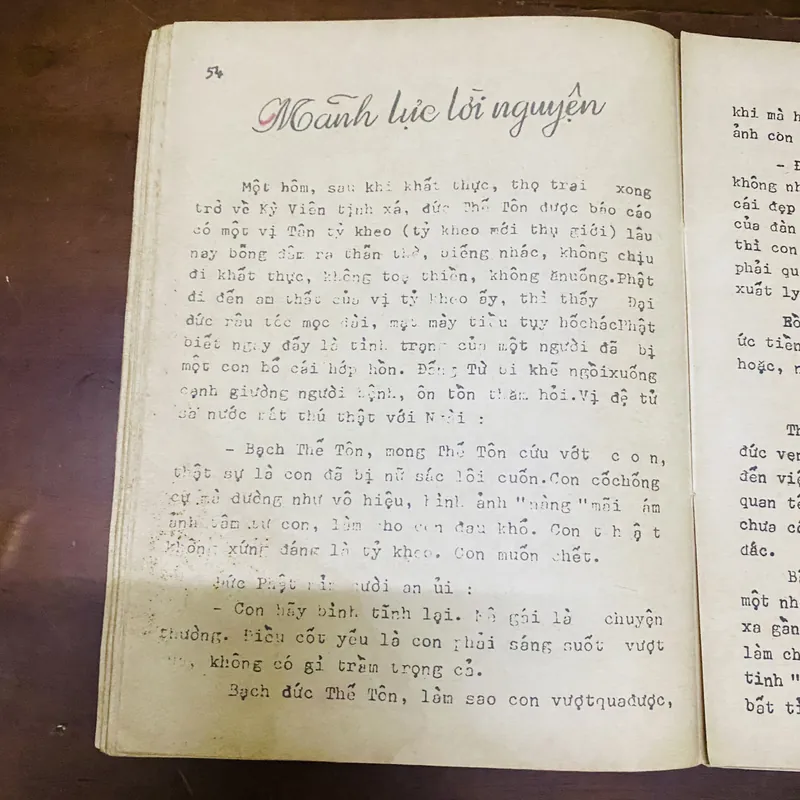 54
Mãnh lực lời nguyện
Một hôm, sau khi khất thực, thọ trai xong
trở về Kỳ Viên tịnh xá, đức Thế Tôn được báo cáo
có một vị Tân tỷ kheo (tỷ kheo mới thụ giới) lâu
nay bỗng đâm ra thẫn thờ, biếng nhác, không chịu
đi khất thực, không toạ thiền, không ănuống.Phật
đi đến am thất của vị tỷ kheo ấy, thì thấy Đại
đức râu tóc mọc dài, mặt mày tiều tụy hốchácPhật
biết ngay đấy là tình trạng của một người đã bị
một con bồ cái hớp hồn. Đấng Từ bi khẽ ngồixuống
cạnh giường người bệnh, ôn tồn thăm hỏi.Vị đệ tử
sa nước mắt thú thật với Ngài :
- Bạch Thế Tôn, mong Thế Tôn cứu vớt c o n,
thật sự là con đã bị nữ sắc lôi cuốn.Con cốchống
cự mà dường như vô hiệu, hình ảnh "nàng "mãi ám
ảnh tâm tư con, làm cho con đau khổ. Con t h ậ t
không xứng đáng là tỷ kheo. Con muốn chết.
Đức Phật mỉm cười an ủi :
- Con hãy bình tĩnh lại. Mê gái là chuyện
thường. Điều cốt yếu là con phải sáng suốt vượt
không có gì trầm trọng cả.
Bạch đức Thế Tôn, làm sao con vượtquađược,
khi mà h
ảnh còn
- Đ
không nh
cái đẹp
của đàn
thì con
phải qu
xuất ly
Hồ
ức tiền
hoặc, n
Th
đức vẹn
đến việ
quan tê
chưa cả
đắc.
Bĩ
một nh
xa gần
làm ch
tinh "
bất tỉ